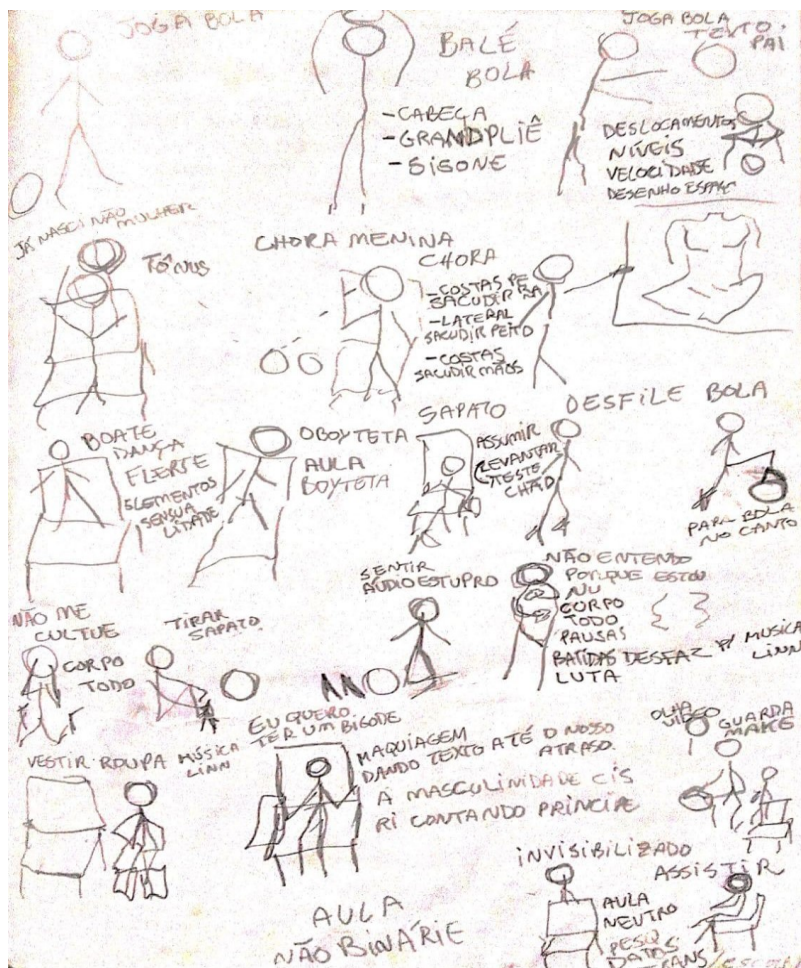 JOGA BOLA
BALÉ
BOLA
-CABEÇA
-GRANDPLIÊ
-SISONE
JOGA BOLA
TEXTO
PAI
DESLOCAMENTOS
NÍVEIS
VELOCIDADE
DESENHO ESPAÇ
JÁ NASCI NÃO
MULHER
TÔNUS
CHORA MENINA
CHORA
-COSTAS PE
SACUDIR
-LATERAL
SACUDIR PEITO
-COSTAS
SACUDIR MÃOS
BOATE
DANÇA
FLERTE
ELEMENTOS
SENSUA
LIDADE
OBOYTETA
AULA
BOYTETA
SAPATO
ASSUMIR
LEVANTAR
TESTE
CHÃO
DESFILE BOLA
PARA BOLA
NO CANTO
NÃO ME
CULTUE
CORPO
TODO
TIRAR
SAPATO
SENTIR
ÁUDIO ESTUPRO
NÃO ENTENDO
PORQUE ESTOU
NU
CORPO
TODO
PAUSAS
BATIDAS DESFAZ P/ MUSICA
LUTA LINN
VESTIR ROUPA MÚSICA
LINN
EU QUERO
TER UM BIGODE
MAQUIAGEM
DANDO TEXTO ATÉ O NOSSO
ATRASO.
A MASCULINIDADE CIS
RI CONTANDO PRINCIPE
OLHA
VÍDEO
GUARDA
MAKE
AULA
NÃO BINÁRIE
INVISIBILIZADO
ASSISTIR
AULA
NEUTRO
PESQ
DATOS
TRANS